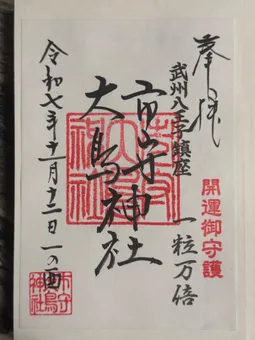 奉拝
武州八王子鎮座
開運御守護
一粒万倍
市守
大鳥神社
令和七年十一月十二日 一の酉